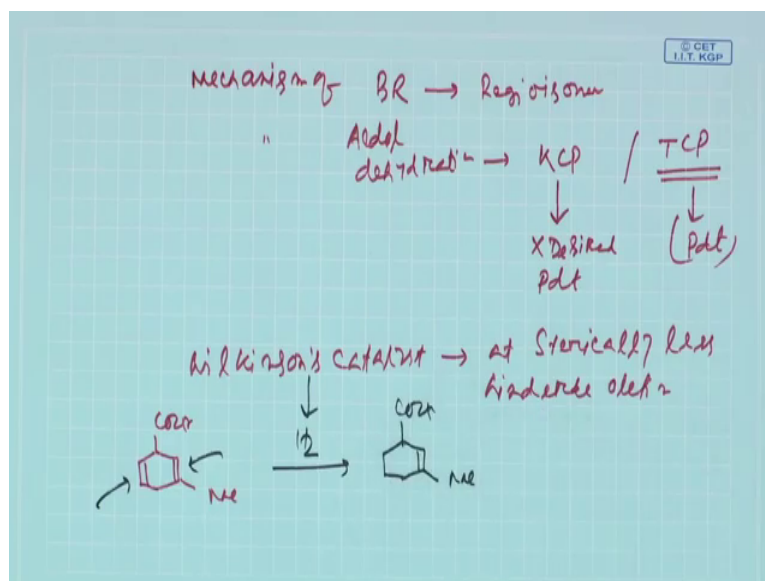 © CET
I.I.T. KGP
Mechanism of BR → Regioisomer
" Aldol
dehydration → KCP / TCP
X Desired (Pdt)
Pdt
Wilkinson's Catalyst → at Sterically less
hindered olefin
H2
CO2H CO2H
Me Me